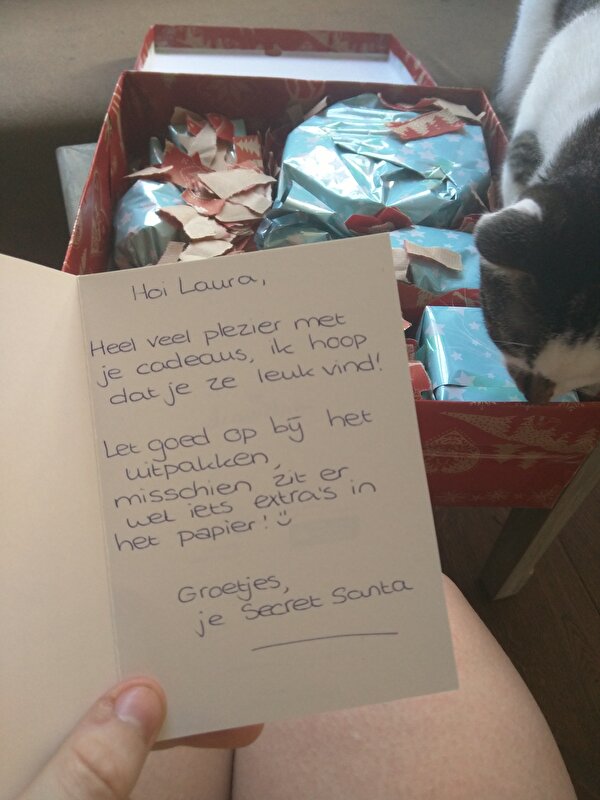 Hoi Laura,
Heel veel plezier met
je cadeaus, ik hoop
dat je ze leuk vind!
Let goed op bij het
uitpakken,
misschien zit er
wel iets extra's in
het papier! :)
Groetjes,
je Secret Santa